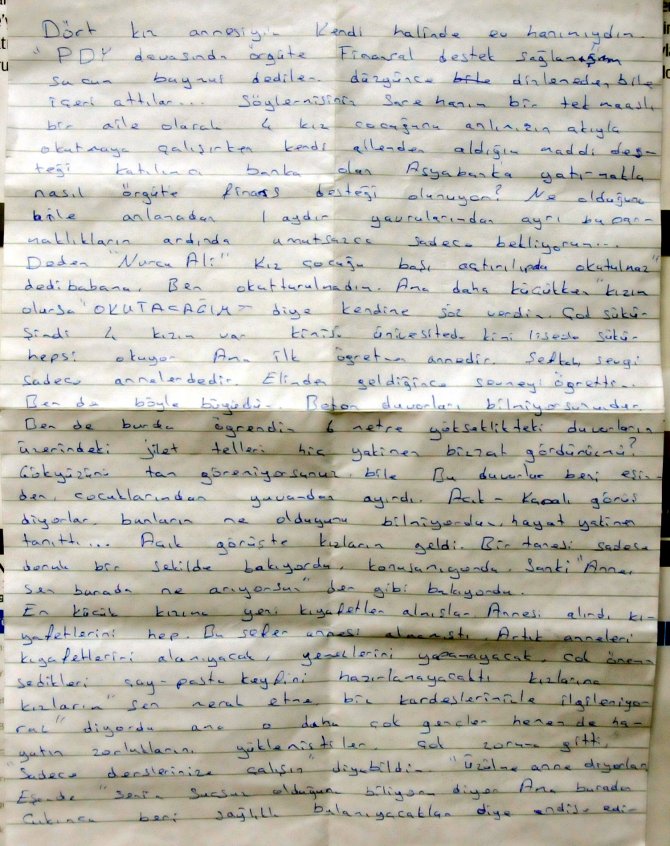 Dört kız annesiyim Kendi halinde ev hanımıydım.
"PDY davasında örgüte Finansal destek sağlamışım
dediler düzgünce dinlenmeden bile
içeri attılar... Söylermisiniz bana hanın bir tek maaşlı
bir aile olarak 4 kız çocuğunu anlımızın akıyla
okutmaya çalışırken kendi ailemden aldığım maddi des-
teği katılım banka olan Asyabanka yatırmakla
nasıl örgüte finans desteği olunuyor? Ne olduğunu
bile anlamadan 1 aydır yavrularımdan ayrı bu par-
maklıkların ardında umutsuzca sadece bekliyorum...
Dedem "Nurcu Ali" Kız çocuğu başı açtırılıpda okutulmaz"
dedi babama. Ben okutturulmadım. Ama daha küçükken "kızım
olursa "OKUTACAĞIM" diye kendime söz verdim. Çok şükür
Şimdi 4 kızım var kimisi üniversitede kimi lisede şükür
hepsi okuyor Ama ilk öğretmen annedir. Sefkat sevgi
sadece annelerdedir. Elimden geldiğince sevmeyi öğrettim..
Ben de böyle büyüdüm. Beton duvarları bilmiyorsunuzdur.
Ben de burda öğrendim 6 metre yükseklikteki duvarların
üzerindeki jilet telleri hiç yakinen bizzat gördünüzmü?
Gökyüzünü tam göremiyorsunuz bile Bu duvarlar beni eşim-
den, çocuklarımdan yuvamdan ayırdı. Açık - Kapalı görüş
diyorlar, bunların ne olduğunu bilmiyorduk, hayat yakinen
tanıttı... Açık görüşte kızlarım geldi. Bir tanesi sadece
donuk bir şekilde bakıyordu, konuşamıyordu. Sanki "Anne
sen burada ne arıyorsun" der gibi bakıyordu.
En küçük kızıma yeni kıyafetler almışlar. Annesi alırdı kı-
yafetlerini hep. Bu sefer annesi almamıştı. Artık anneleri
kıyafetlerini alamıyacak, yemeklerini yapamayacak, çok önem-
sedikleri çay-pasta keyfini hazırlamayacaktı kızlarına
kızlarım "sen merak etme biz kardeşlerimizle ilgileniyo-
ruz" diyordu ama o daha çok gençler hemen de ha-
yatın zorluklarını yüklemiştiler. Çok zoruma gitti.
"Sadece derslerinize çalışın" diyebildim. "Üzülme anne diyorlar"
Eşimde "senin suçsuz olduğunu biliyorum diyor Ama buradan
Çıkınca beni sağlıklı bulamıyacaklar diye endişe edi-